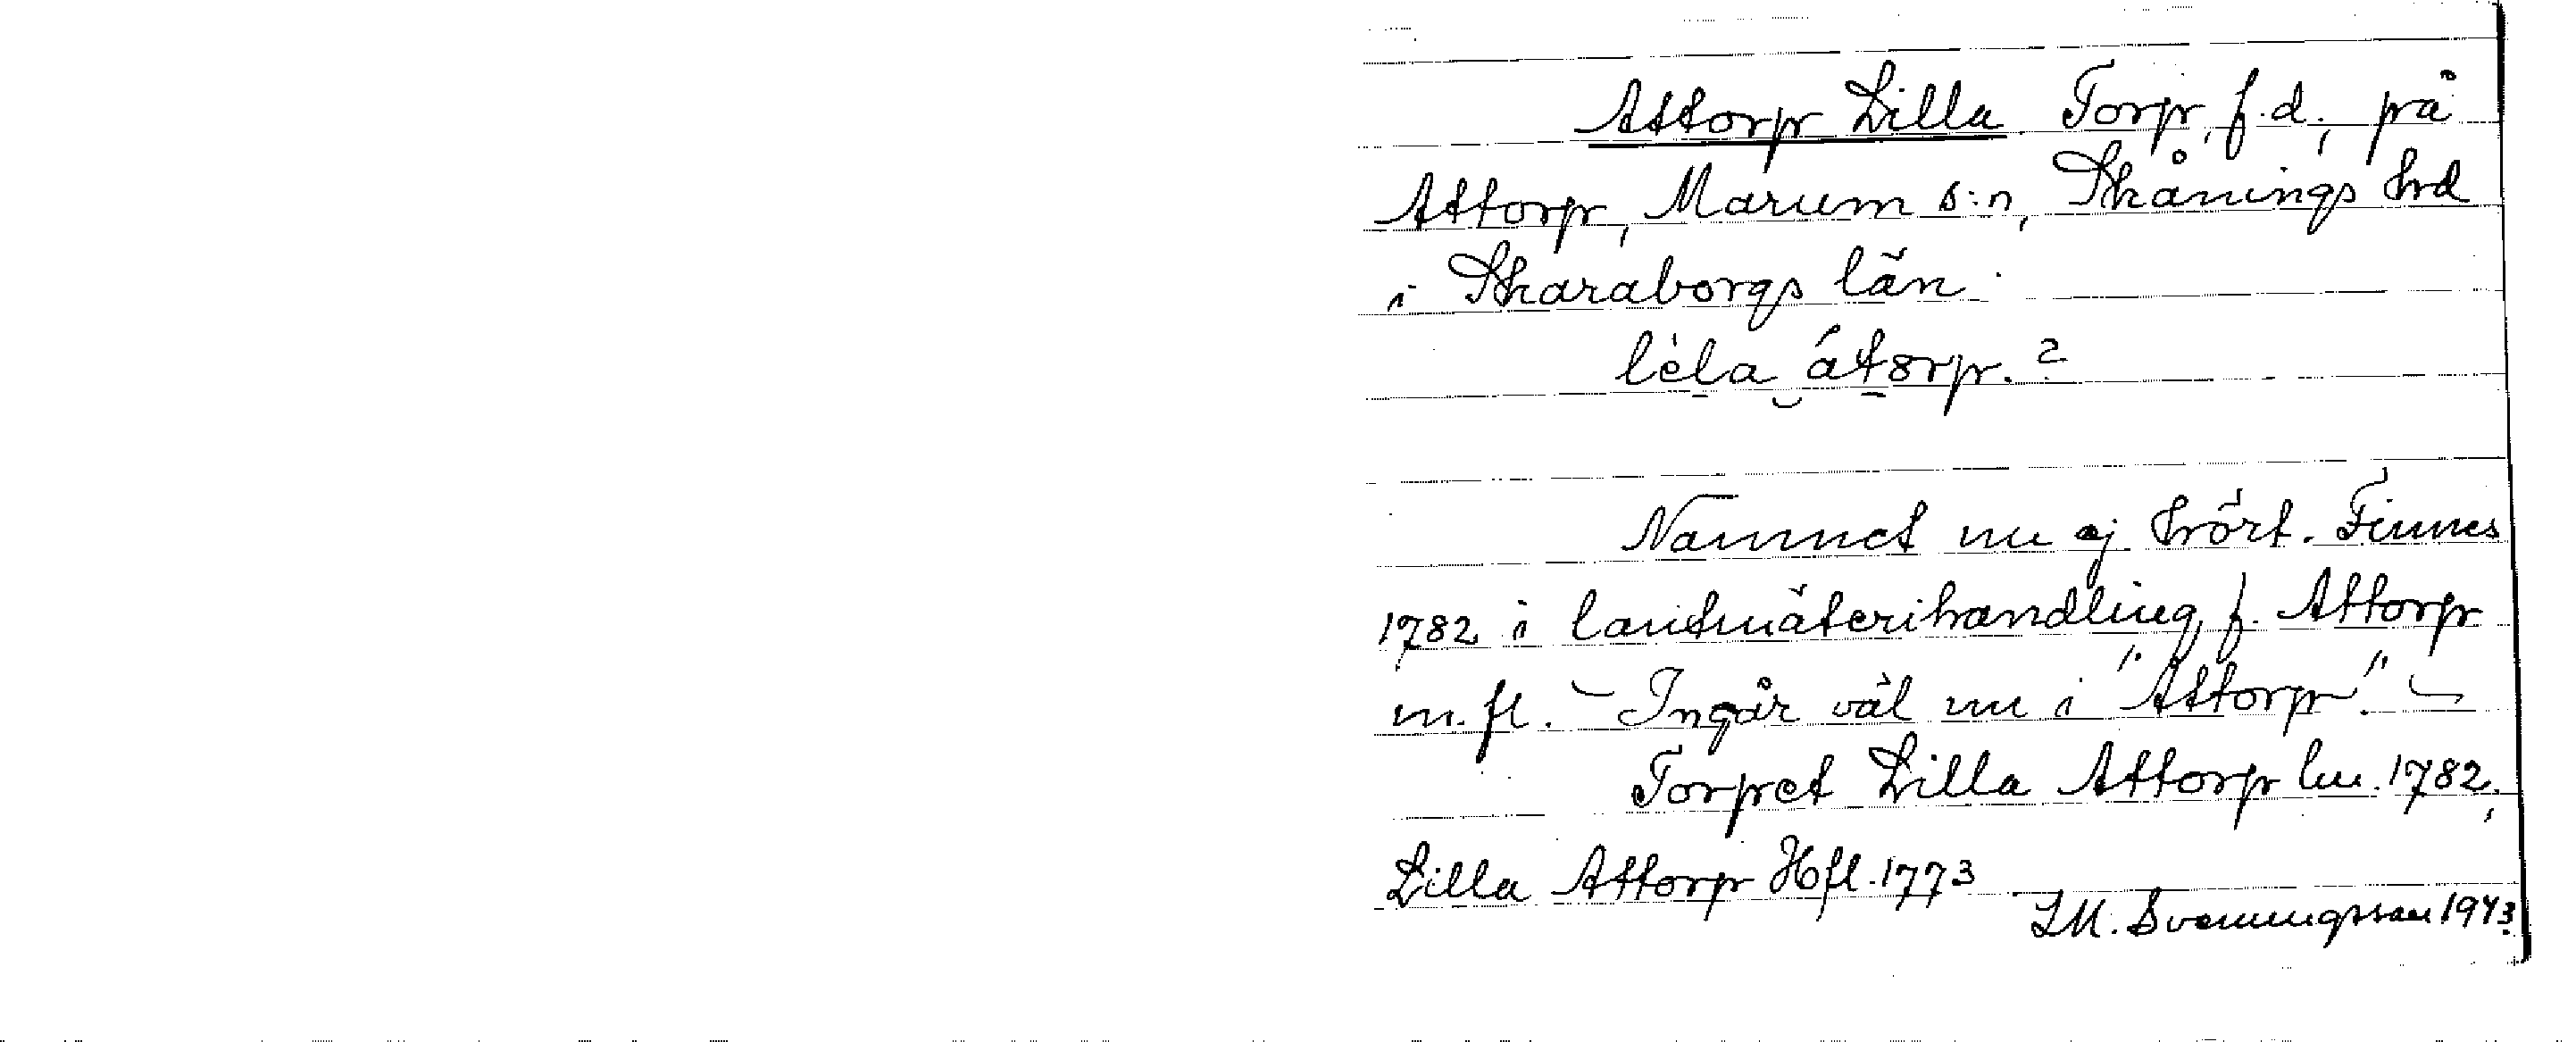 Attorp Lilla Torp, f.d., på
Attorp, Marum s:n, Skånings hd
i Skaraborgs län.
lèla átorp. ?
Namnet nu ej hört. Finnes
1782 i lantmäterihandling f. Attorp
m.fl. – Ingår väl nu i "Attorp". –
Torpet Lilla Attorp lm. 1782,
Lilla Attorp Hfl. 1773
I.M. Svenungsson 1943.